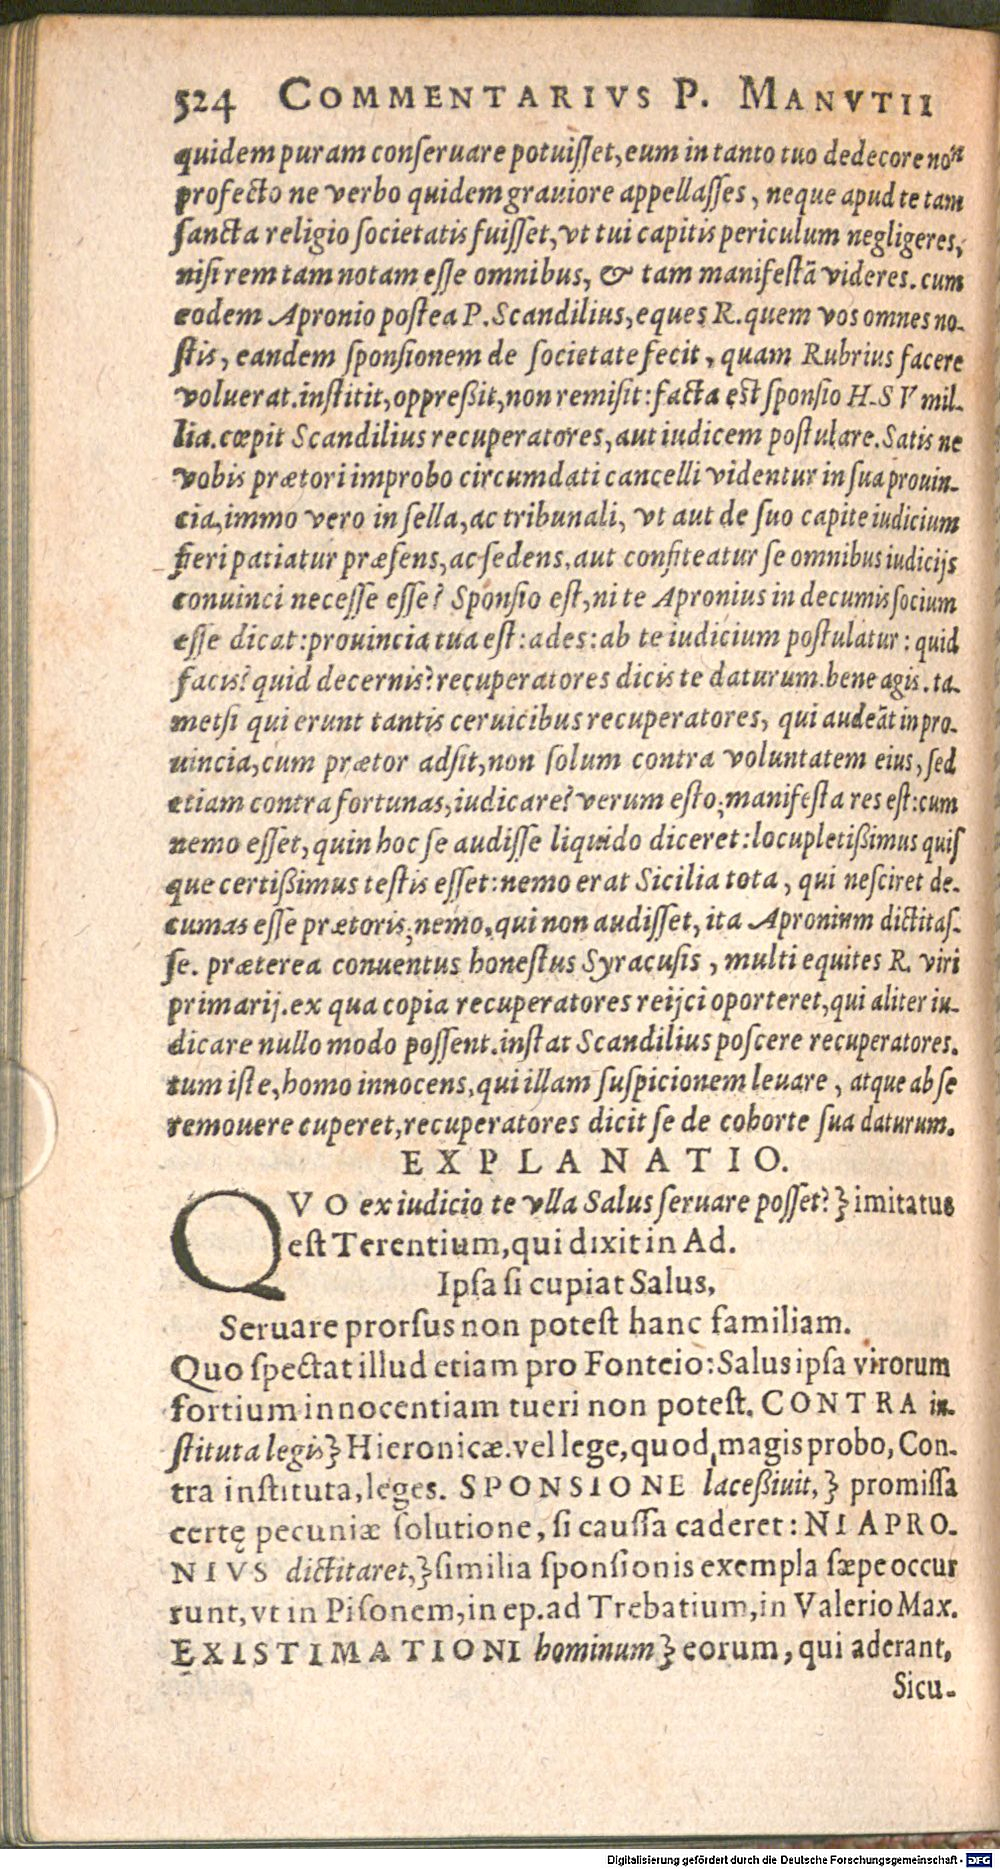 524 COMMENTARIVS P. MANVTII
quidem puram conſeruare potuiſſet, eum in tanto tuo dedecore noⁿ
profecto ne verbo quidem grauiore appellaſſes, neque apud te tam
ſancta religio ſocietatis fuiſſet, vt tui capitis periculum negligeres,
niſi rem tam notam eſſe omnibus, & tam manifeſtā videres. cum
eodem Apronio poſtea P. Scandilius, eques R. quem vos omnes no-
ſtis, eandem ſponſionem de ſocietate fecit, quam Rubrius facere
voluerat. inſtitit, oppreßit, non remiſit: facta eſt ſponſio H-S V mil-
lia. cœpit Scandilius recuperatores, aut iudicem poſtulare. Satis ne
vobis prætori improbo circumdati cancelli videntur in ſua prouin-
cia, immo vero in ſella, ac tribunali, vt aut de ſuo capite iudicium
fieri patiatur præſens, ac ſedens, aut confiteatur ſe omnibus iudicijs
conuinci neceſſe eſſe? Sponſio eſt, ni te Apronius in decumis ſocium
eſſe dicat: prouincia tua eſt: ades: ab te iudicium poſtulatur: quid
facis? quid decernis? recuperatores dicis te daturum. bene agis. ta-
metſi qui erunt tantis ceruicibus recuperatores, qui audeāt in pro-
uincia, cum prætor adſit, non ſolum contra voluntatem eius, ſed
etiam contra fortunas, iudicare? verum eſto; manifeſta res eſt: cum
nemo eſſet, quin hoc ſe audiſſe liquido diceret: locupletißimus quiſ
que certißimus teſtis eſſet: nemo erat Sicilia tota, qui neſciret de-
cumas eſſe prætoris; nemo, qui non audiſſet, ita Apronium dictitaſ-
ſe. præterea conuentus honeſtus Syracuſis, multi equites R. viri
primarij. ex qua copia recuperatores reijci oporteret, qui aliter iu-
dicare nullo modo poſſent. inſtat Scandilius poſcere recuperatores.
tum iſte, homo innocens, qui illam ſuſpicionem leuare, atque ab ſe
remouere cuperet, recuperatores dicit ſe de cohorte ſua daturum.
EXPLANATIO.
QVO ex iudicio te vlla Salus ſeruare poſſet? ʒ imitatus
eſt Terentium, qui dixit in Ad.
Ipſa ſi cupiat Salus,
Seruare prorſus non poteſt hanc familiam.
Quo ſpectat illud etiam pro Fonteio: Salus ipſa virorum
fortium innocentiam tueri non poteſt. CONTRA in-
ſtituta legis ʒ Hieronicæ. vel lege, quod magis probo, Con-
tra inſtituta, leges. SPONSIONE laceßiuit, ʒ promiſſa
certę pecuniæ ſolutione, ſi cauſſa caderet: NI APRO-
NIVS dictitaret, ʒ ſimilia ſponſionis exempla ſæpe occur
runt, vt in Piſonem, in ep. ad Trebatium, in Valerio Max.
EXISTIMATIONI hominum ʒ eorum, qui aderant,
Sicu-
Digitalisierung gefördert durch die Deutsche Forschungsgemeinschaft - DFG